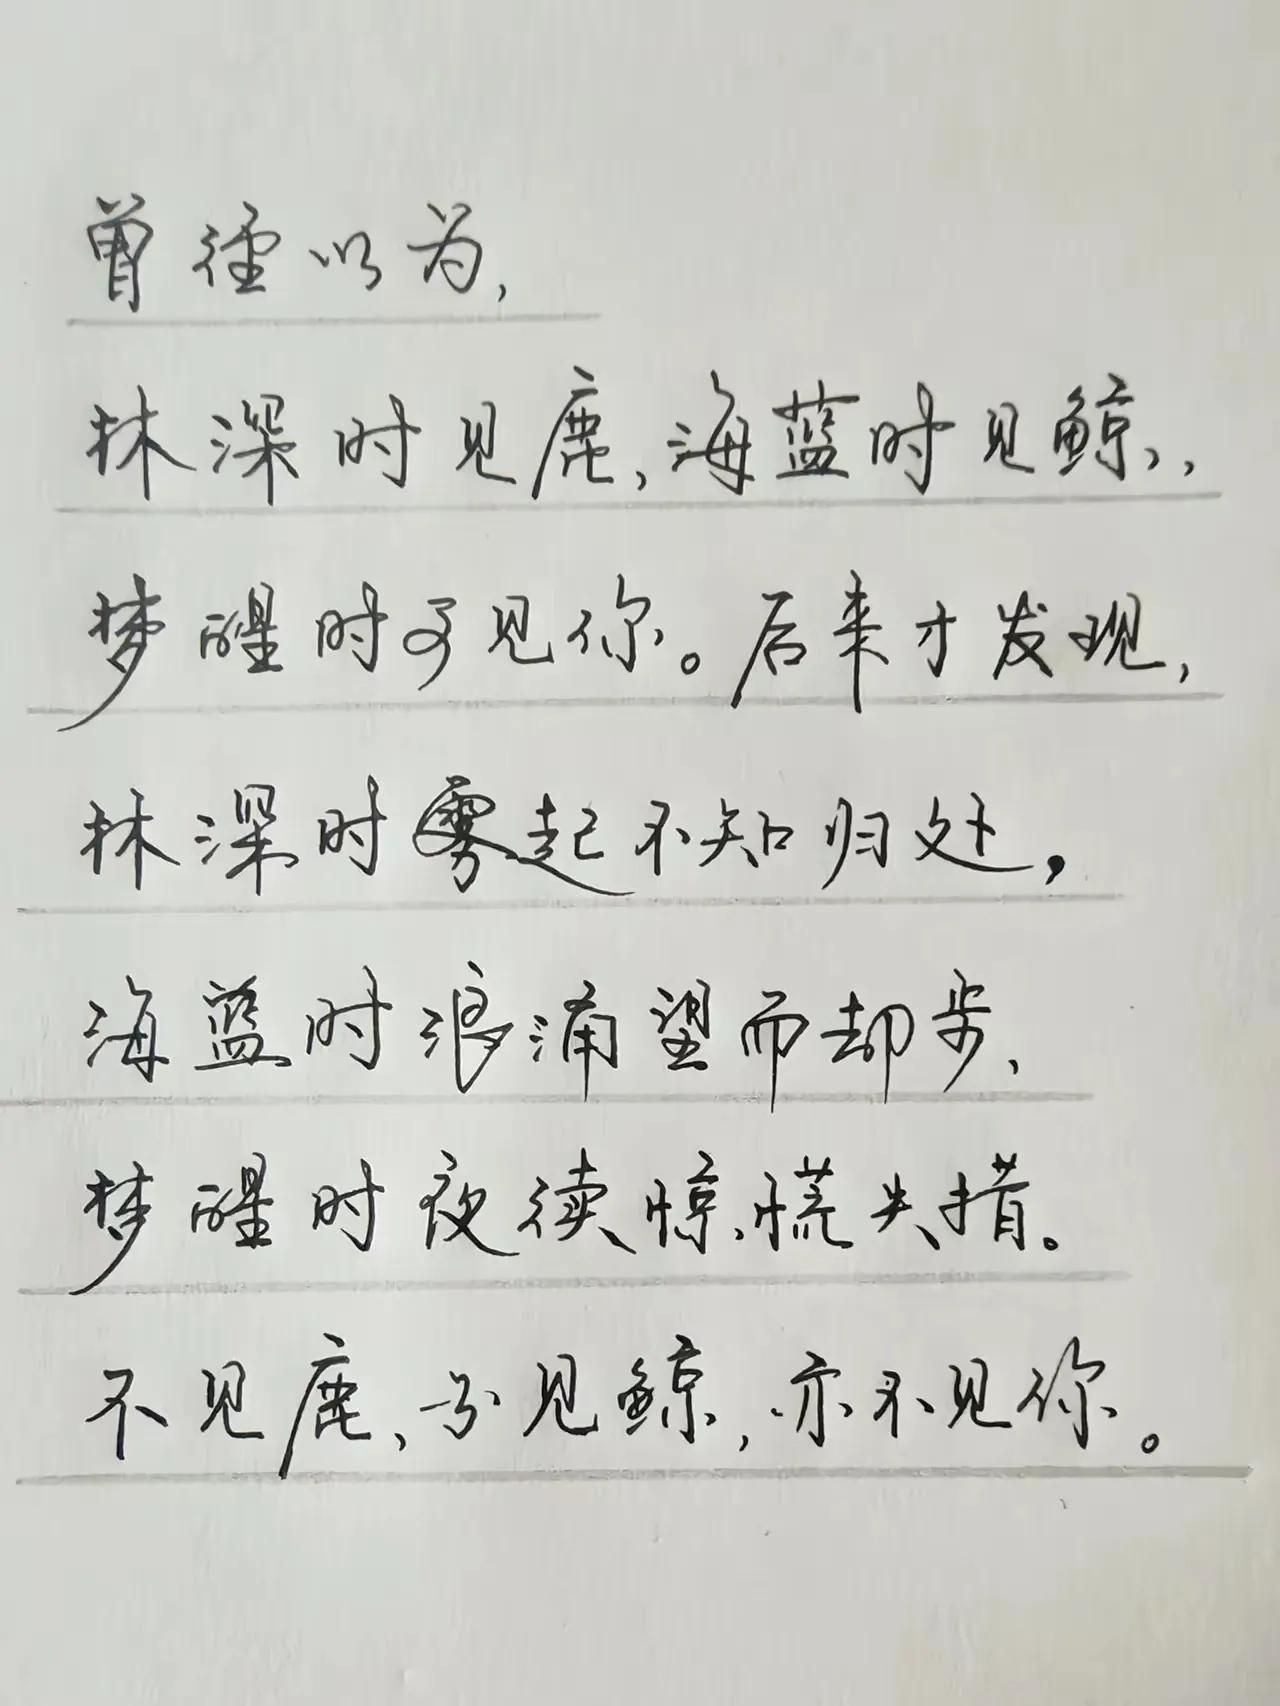 曾经以为,
林深时见鹿,海蓝时见鲸,
梦醒时可见你。后来才发现,
林深时雾起不知归处,
海蓝时浪涌望而却步,
梦醒时夜续惊慌失措。
不见鹿,不见鲸,亦不见你。